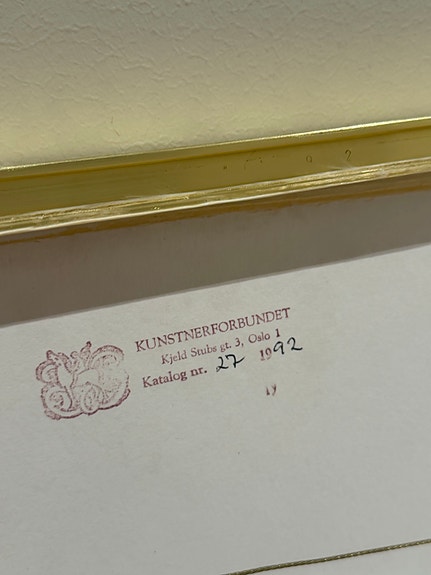 KUNSTNERFORBUNDET
Kjeld Stubs gt. 3, Oslo 1
Katalog nr. 27 1992
19